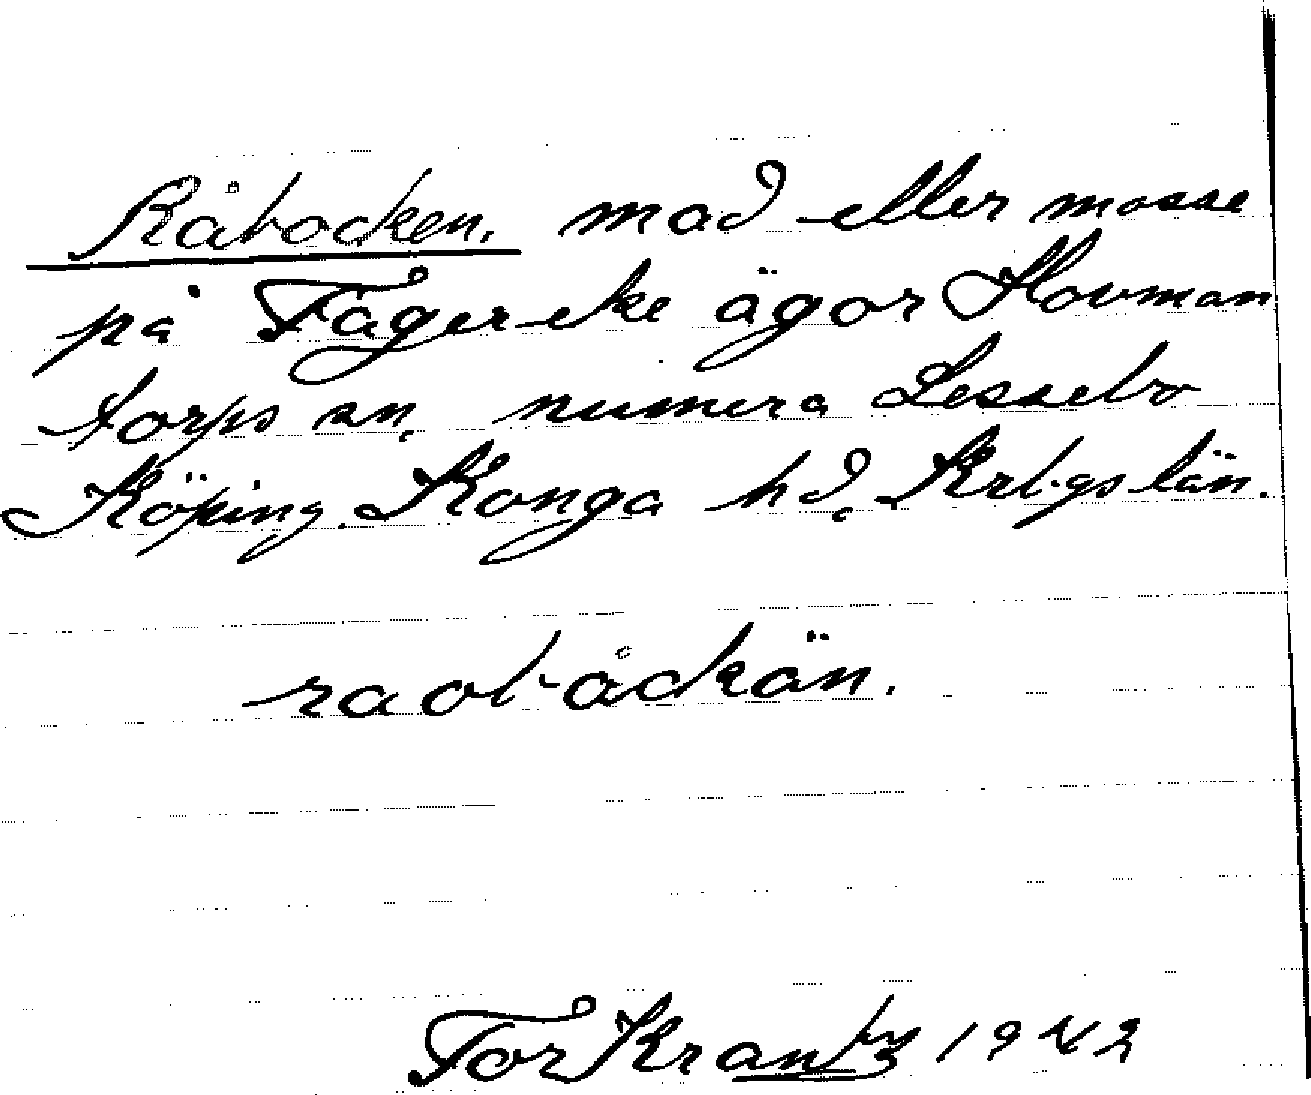 Råbocken. mad eller mosse
på Fagereke ägor Hovman
torps sn. numera Lessebo
Köping. Konga hd. Krb.gs län.
raob-åckän.
Tor Krantz 1942